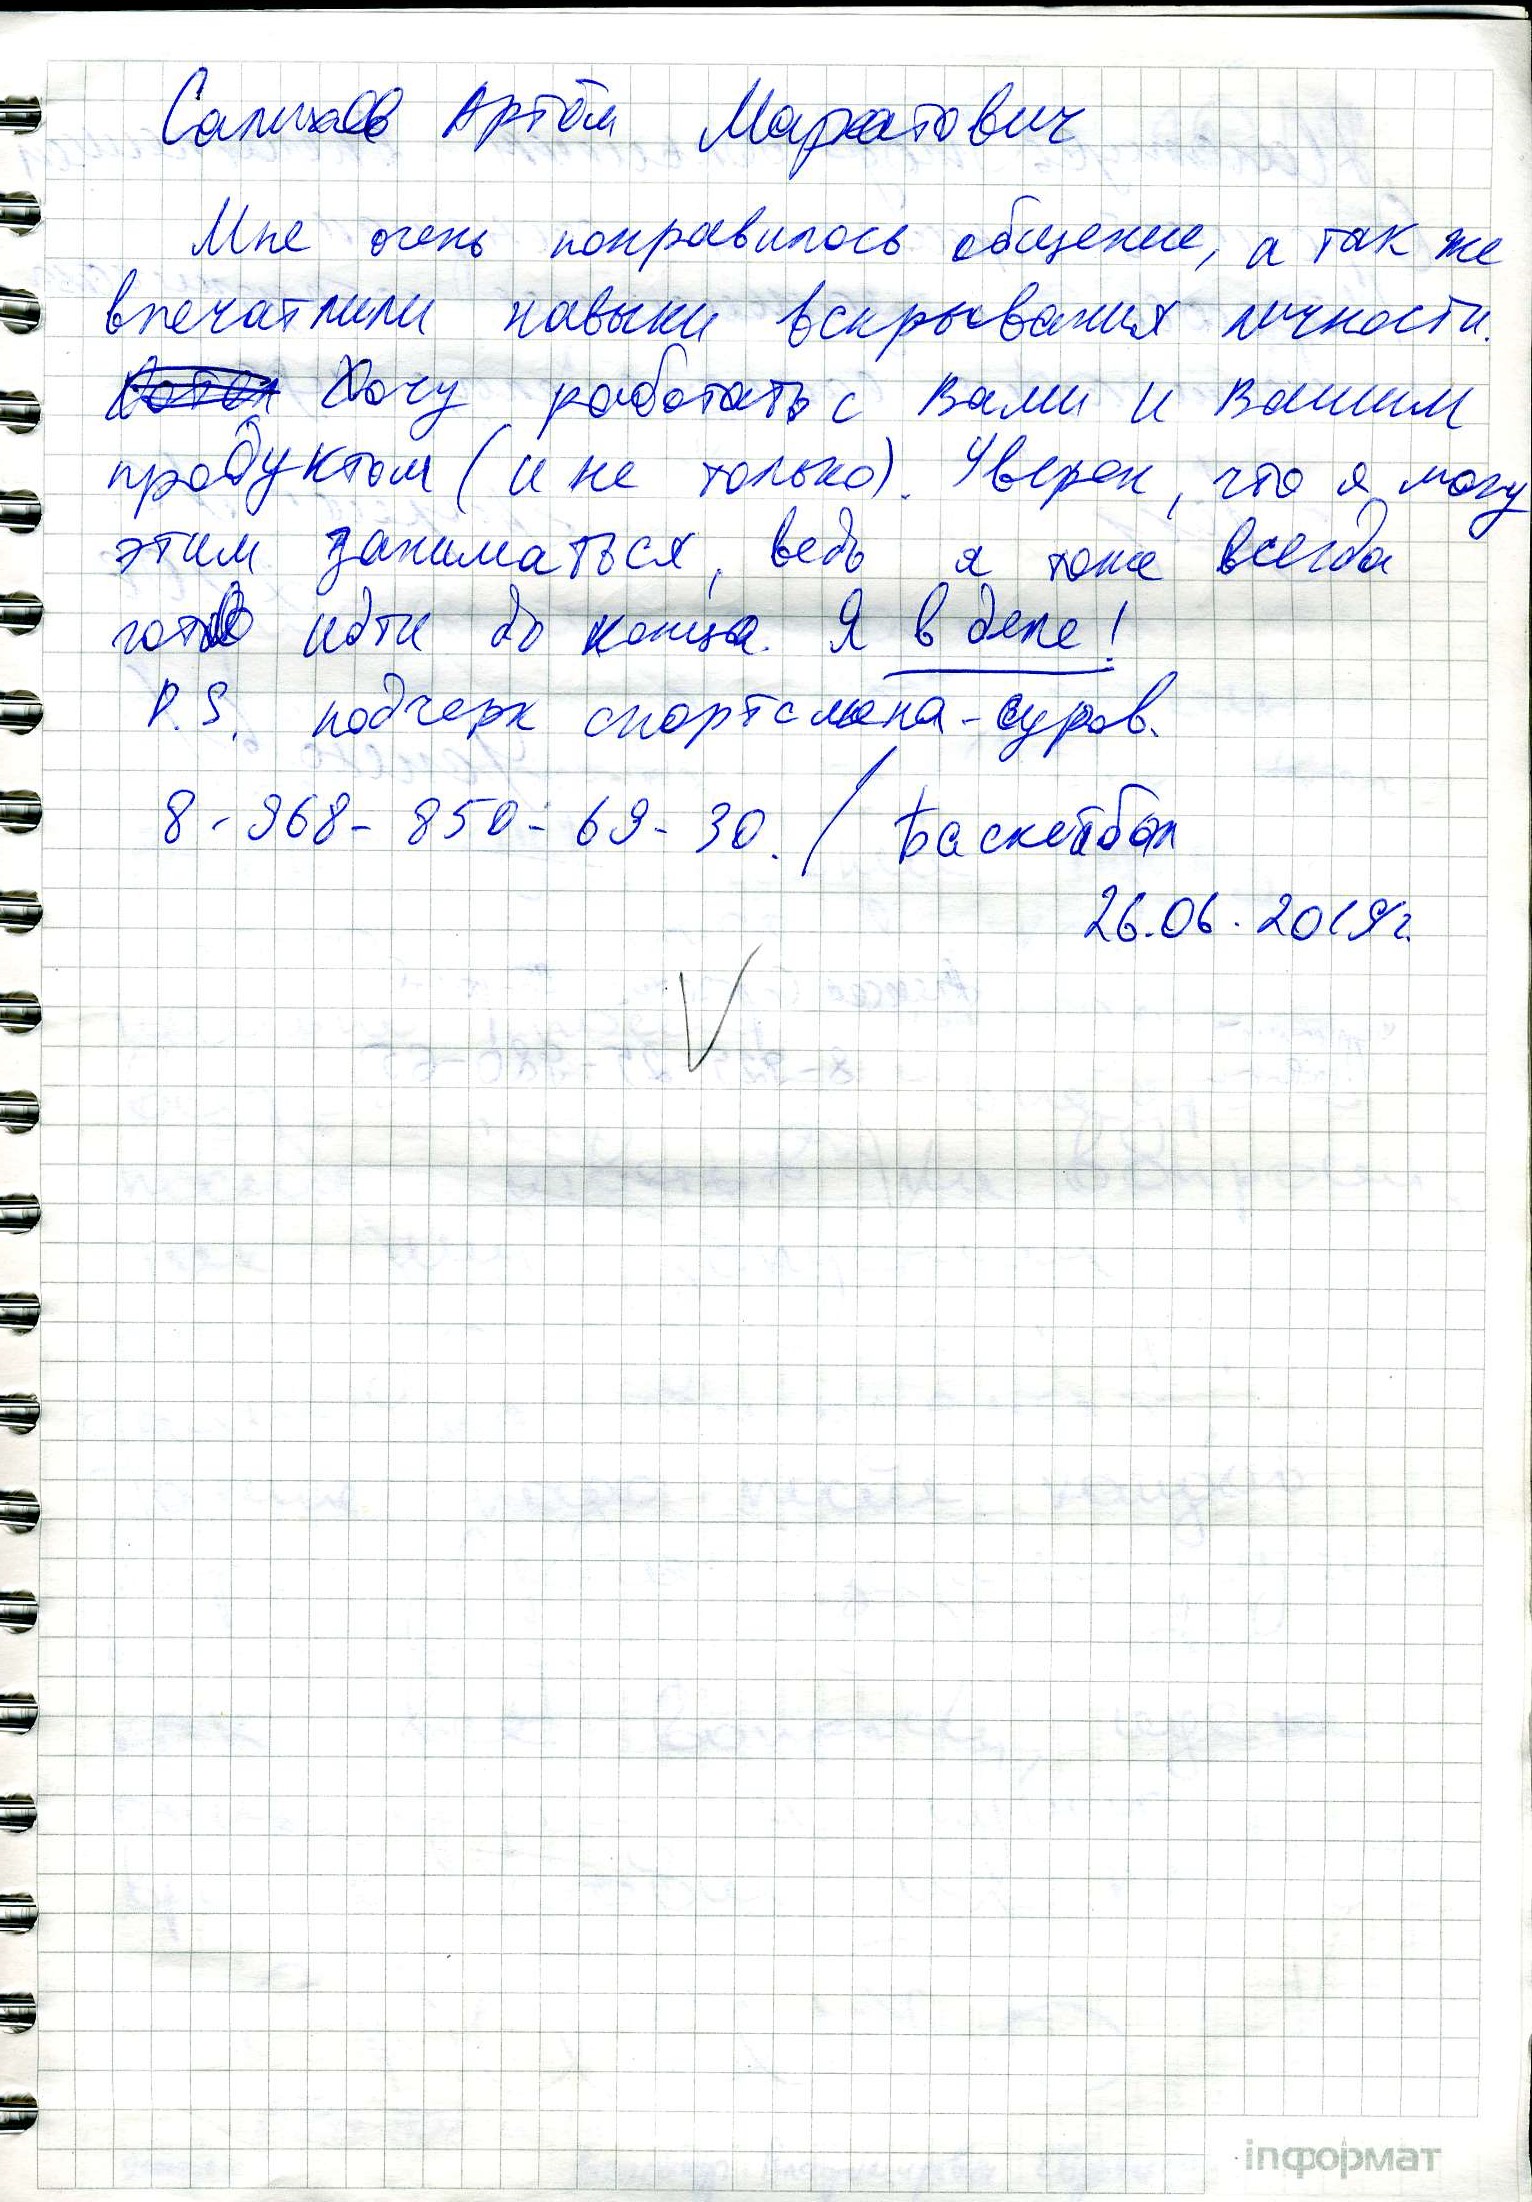 Артём Маратович
Мне очень понравилось общение, а так же
впечатлили навыки вскрывания личности.
Хочу работать с Вами и Вашим
продуктом (и не только). Уверен, что я могу
этим заниматься, ведь я тоже всегда
готов идти до конца. Я в деле!
P.S. подчерк спортсмена - суров.
8-968-850-69-30. / Баскетбол
26.06.2019г.
inформат